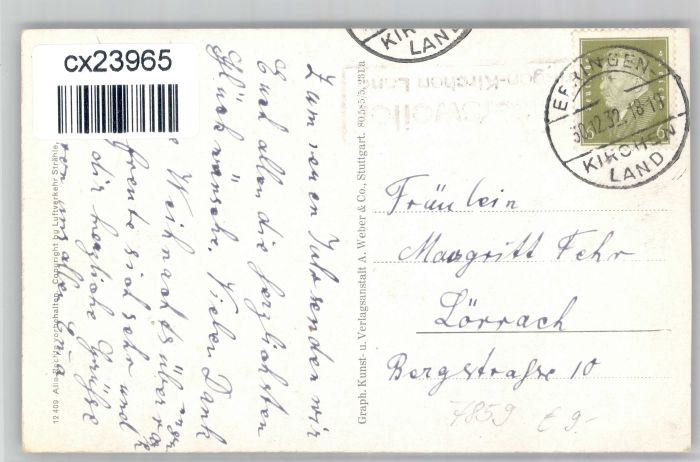 cx23965
KIRCHEN
LAND
EFRINGEN-
30.12.32.18-19
KIRCHEN
LAND
6
Zum neuen Jahr senden wir
Euch allen die herzlichsten
Glückwünsche. Vielen Dank
Weihnachtsüberra
freute sich sehr und
dir herzliche Grüße
von uns allen
Fräulein
Margritt Fehr
Lörrach
Bergstraße 10
7859 € 9-
Graph. Kunst- u. Verlagsanstalt A. Weber & Co., Stuttgart. 80.
12409 Alle Rechte vorbehalten. Copyright by Luftverkehr Strähle,